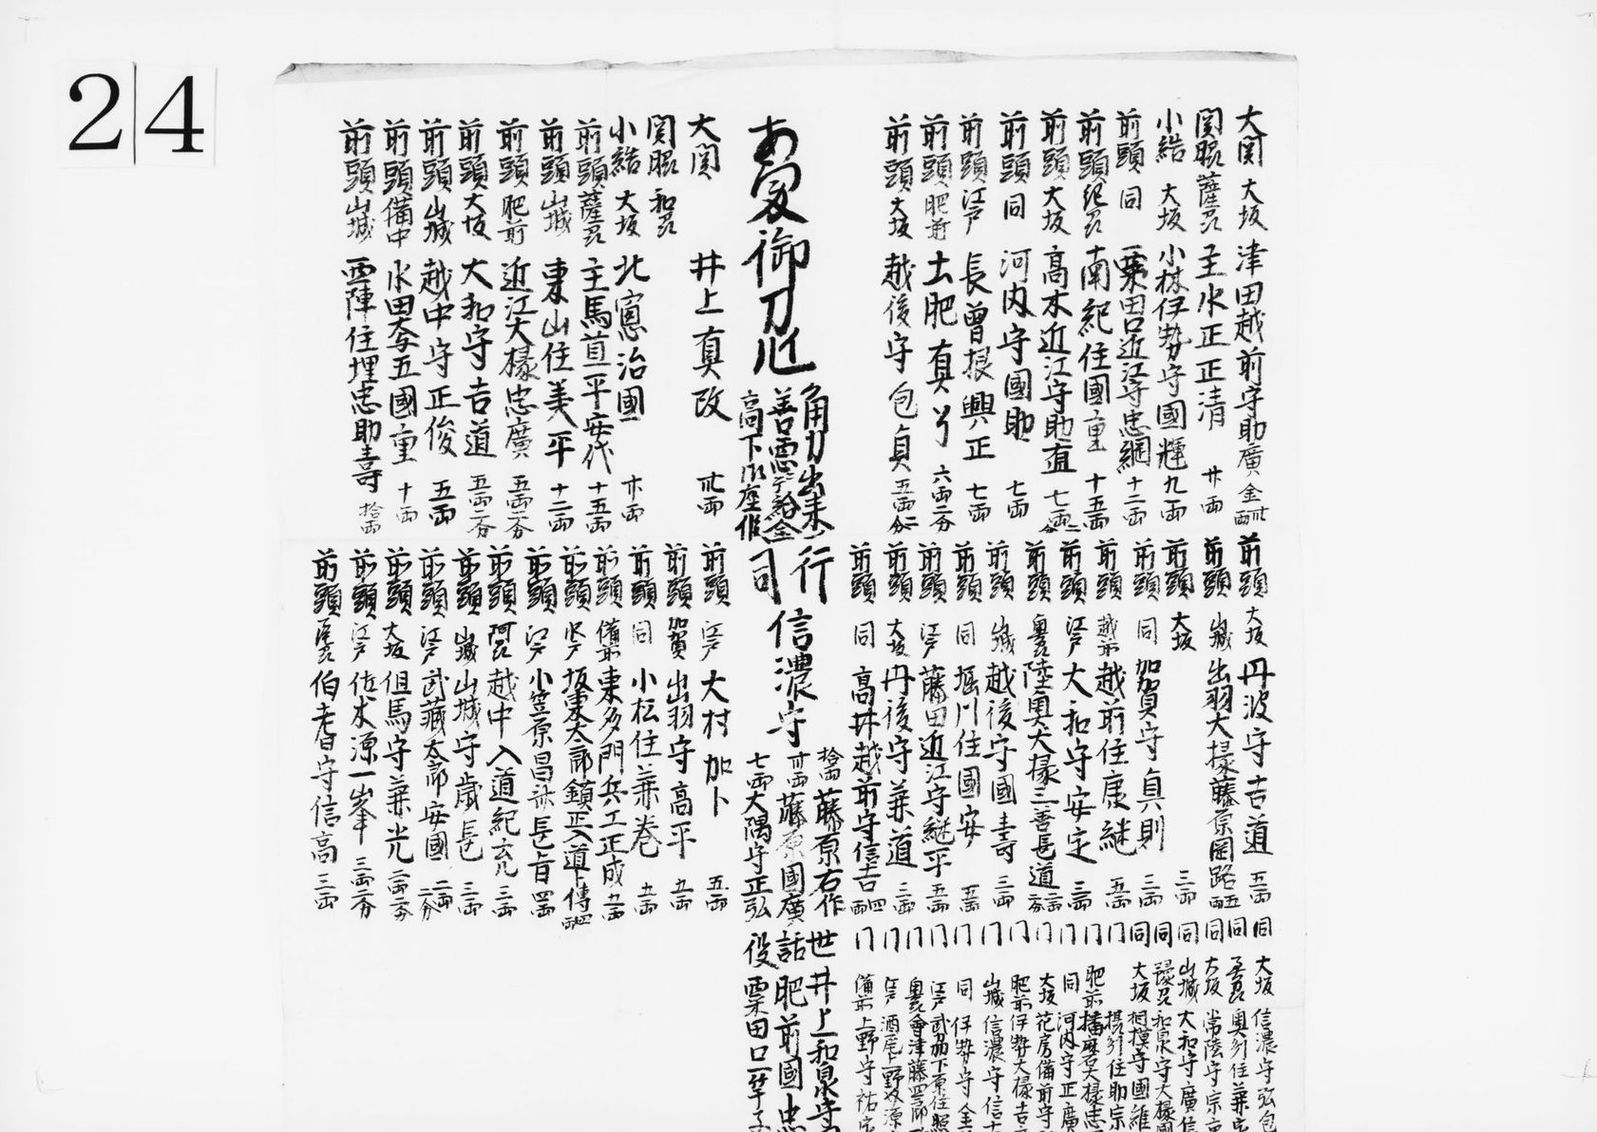 24
大関 大坂 津田越前守助廣 金卅両
関脇 薩州 主水正正清 廿両
小結 大坂 小林伊勢守國輝 九両
前頭 同 粟田口近江守忠綱 十二両
前頭 紀州 南紀住國重 十五両
前頭 大坂 高木近江守助直 七両二分
前頭 同 河内守國助 七両
前頭 江戸 長曽根興正 七両
前頭 肥前 土肥真了 六両二分
前頭 大坂 越後守包貞 五両二分
角力出来
善悪ニテ給金
高下
大関 井上真改 卅両
関脇 和州
小結 大坂 北窓治國 廿両
前頭 薩州 主馬首一平安代 十五両
前頭 山城 東山住美平 十二両
前頭 肥前 近江大掾忠廣 五両二分
前頭 大坂 大和守吉道 五両二分
前頭 山城 越中守正俊 五両
前頭 備中 水田住五國重 十両
前頭 山城 西陣住埋忠助壽 拾両
前頭 大坂 丹波守吉道 五両
前頭 山城 出羽大掾藤原国路 五両
前頭 大坂 三両
前頭 同 加賀守貞則 三両
前頭 越前 越前住康継 五両
前頭 江戸 大和守安定 三両
前頭 奥州 陸奥大掾三善長道 三両二分
前頭 山城 越後守國壽 三両
前頭 同 堀川住國安 五両
前頭 江戸 藤田近江守継平 五両
前頭 大坂 丹後守兼道 三両
前頭 同 高井越前守信吉 四両
行司 信濃守
拾両 藤原右作
卅両 藤原國廣
七両 大隅守正弘
前頭 江戸 大村加卜 五両
前頭 加賀 出羽守高平 九両
前頭 同 小松住兼巻 九両
前頭 備前 東多門兵工正成 九両
前頭 水戸 坂東太郎鎮正入道卜傳 四両
前頭 江戸 小笠原昌斎長旨 四両
前頭 阿州 越中入道紀充 三両
前頭 山城 山城守歳長 三両
前頭 江戸 武蔵太郎安國 二両二分
前頭 大坂 但馬守兼光 二両二分
前頭 江戸 佐々木源一峯 三両二分
前頭 尾州 伯耆守信高 三両
同 大坂 信濃守弘包
同 奥州住兼定
同 大坂 常陸守宗重
同 山城 大和守廣信
同 和泉守大掾國
同 大坂 相模守國維
門 摂州住助宗
門 肥前 播磨大掾忠
門 同 河内守正廣
門 大坂 花房備前守
門 肥前 伊勢大掾吉
門 山城 信濃守信吉
門 同 伊勢守金
門 江戸 武州下原住照
門 奥州 會津藤四郎
門 江戸
門 備前 上野守祐定
世話役
井上和泉守
肥前國忠
粟田口一竿子